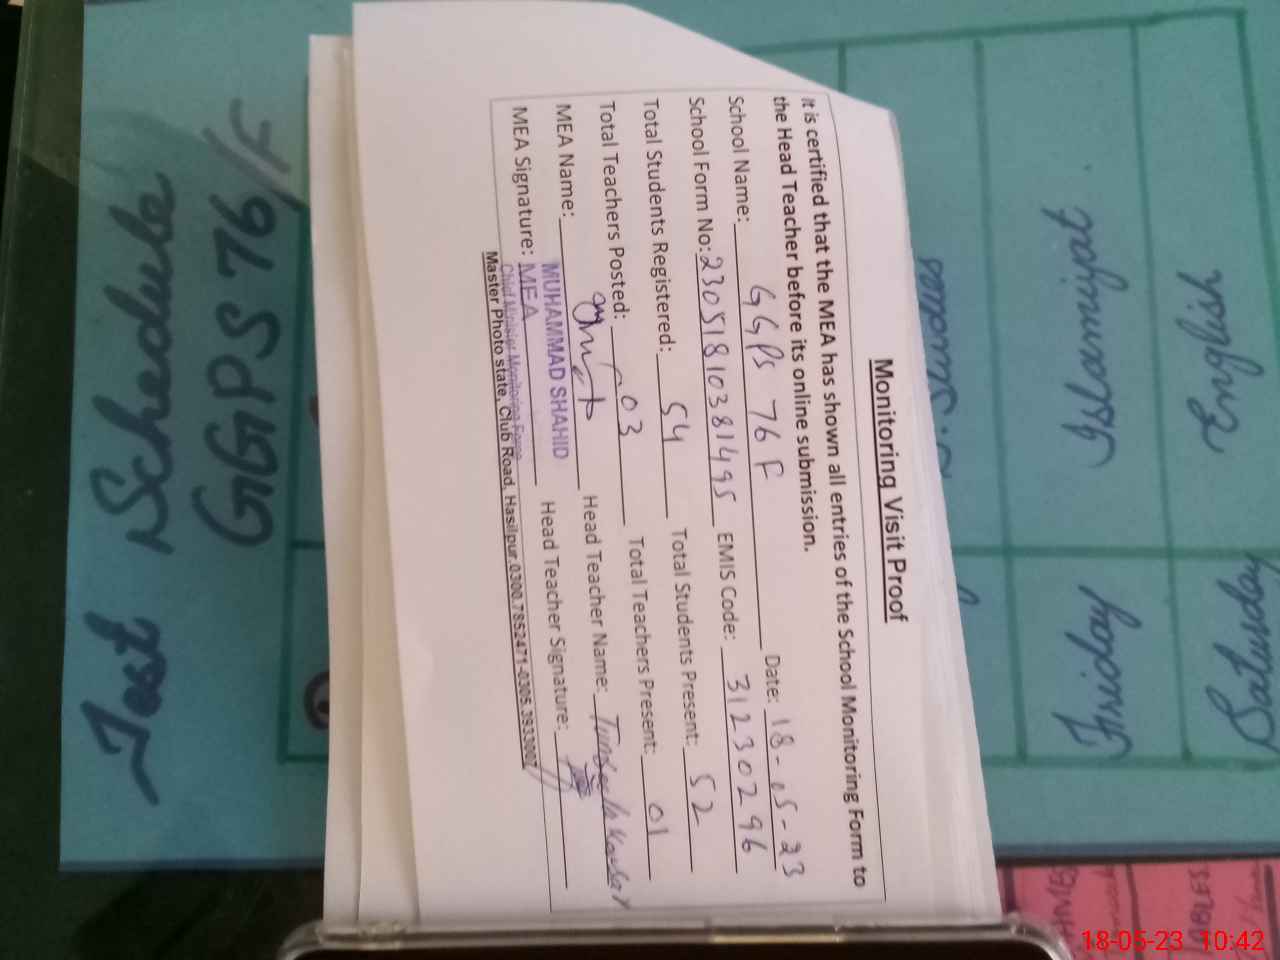 Monitoring Visit Proof
It is certified that the MEA has shown all entries of the School Monitoring Form to
the Head Teacher before its online submission.
School Name: GGPS 76 F Date: 18-05-23
School Form No: 23051810381495 EMIS Code: 31230296
Total Students Registered: 54 Total Students Present: 52
Total Teachers Posted: 03 Total Teachers Present: 01
MEA Name: Head Teacher Name: Kousar
MUHAMMAD SHAHID
MEA Signature: MEA Head Teacher Signature:
Chief Minister Monitoring Force
Master Photo state, Club Road, Hasilpur.0300.7852471-0305.3933007
Test Schedule
GGPS 76/F
Friday Islamiyat
Saturday English
18-05-23 10:42